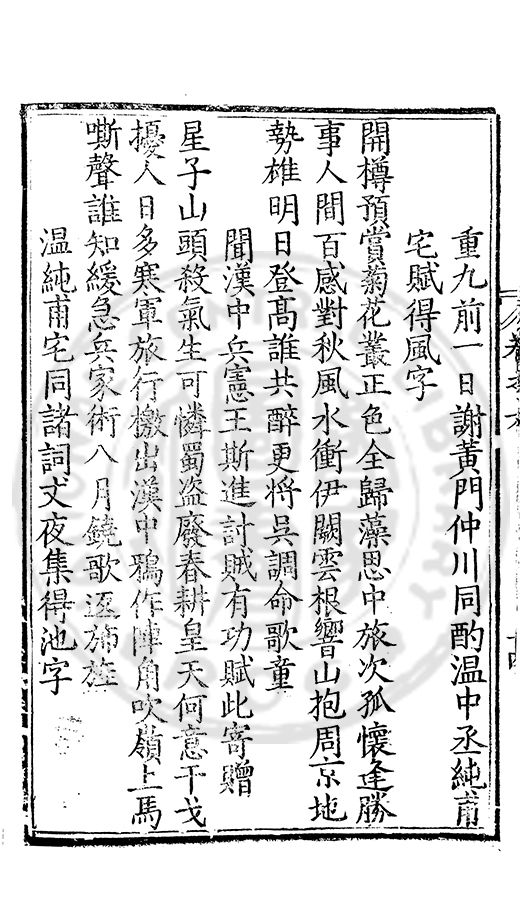 重九前一日謝黃門仲川同酌温中丞純甫
宅賦得風字
開樽預賞菊花叢正色全歸藻思中旅次孤懷逢勝
事人間百感對秋風水衝伊闕雲根響山抱周京地
勢雄明日登高誰共醉更將吳調命歌童
聞漢中兵憲王斯進討賊有功賦此寄贈
星子山頭殺氣生可憐蜀盗廢春耕皇天何意干戈
擾人日多寒軍旅行檄出漢中鴉作陣角吹嶺上馬
嘶聲誰知緩急兵家術八月鐃歌逐旆旌
温純甫宅同諸詞丈夜集得池字